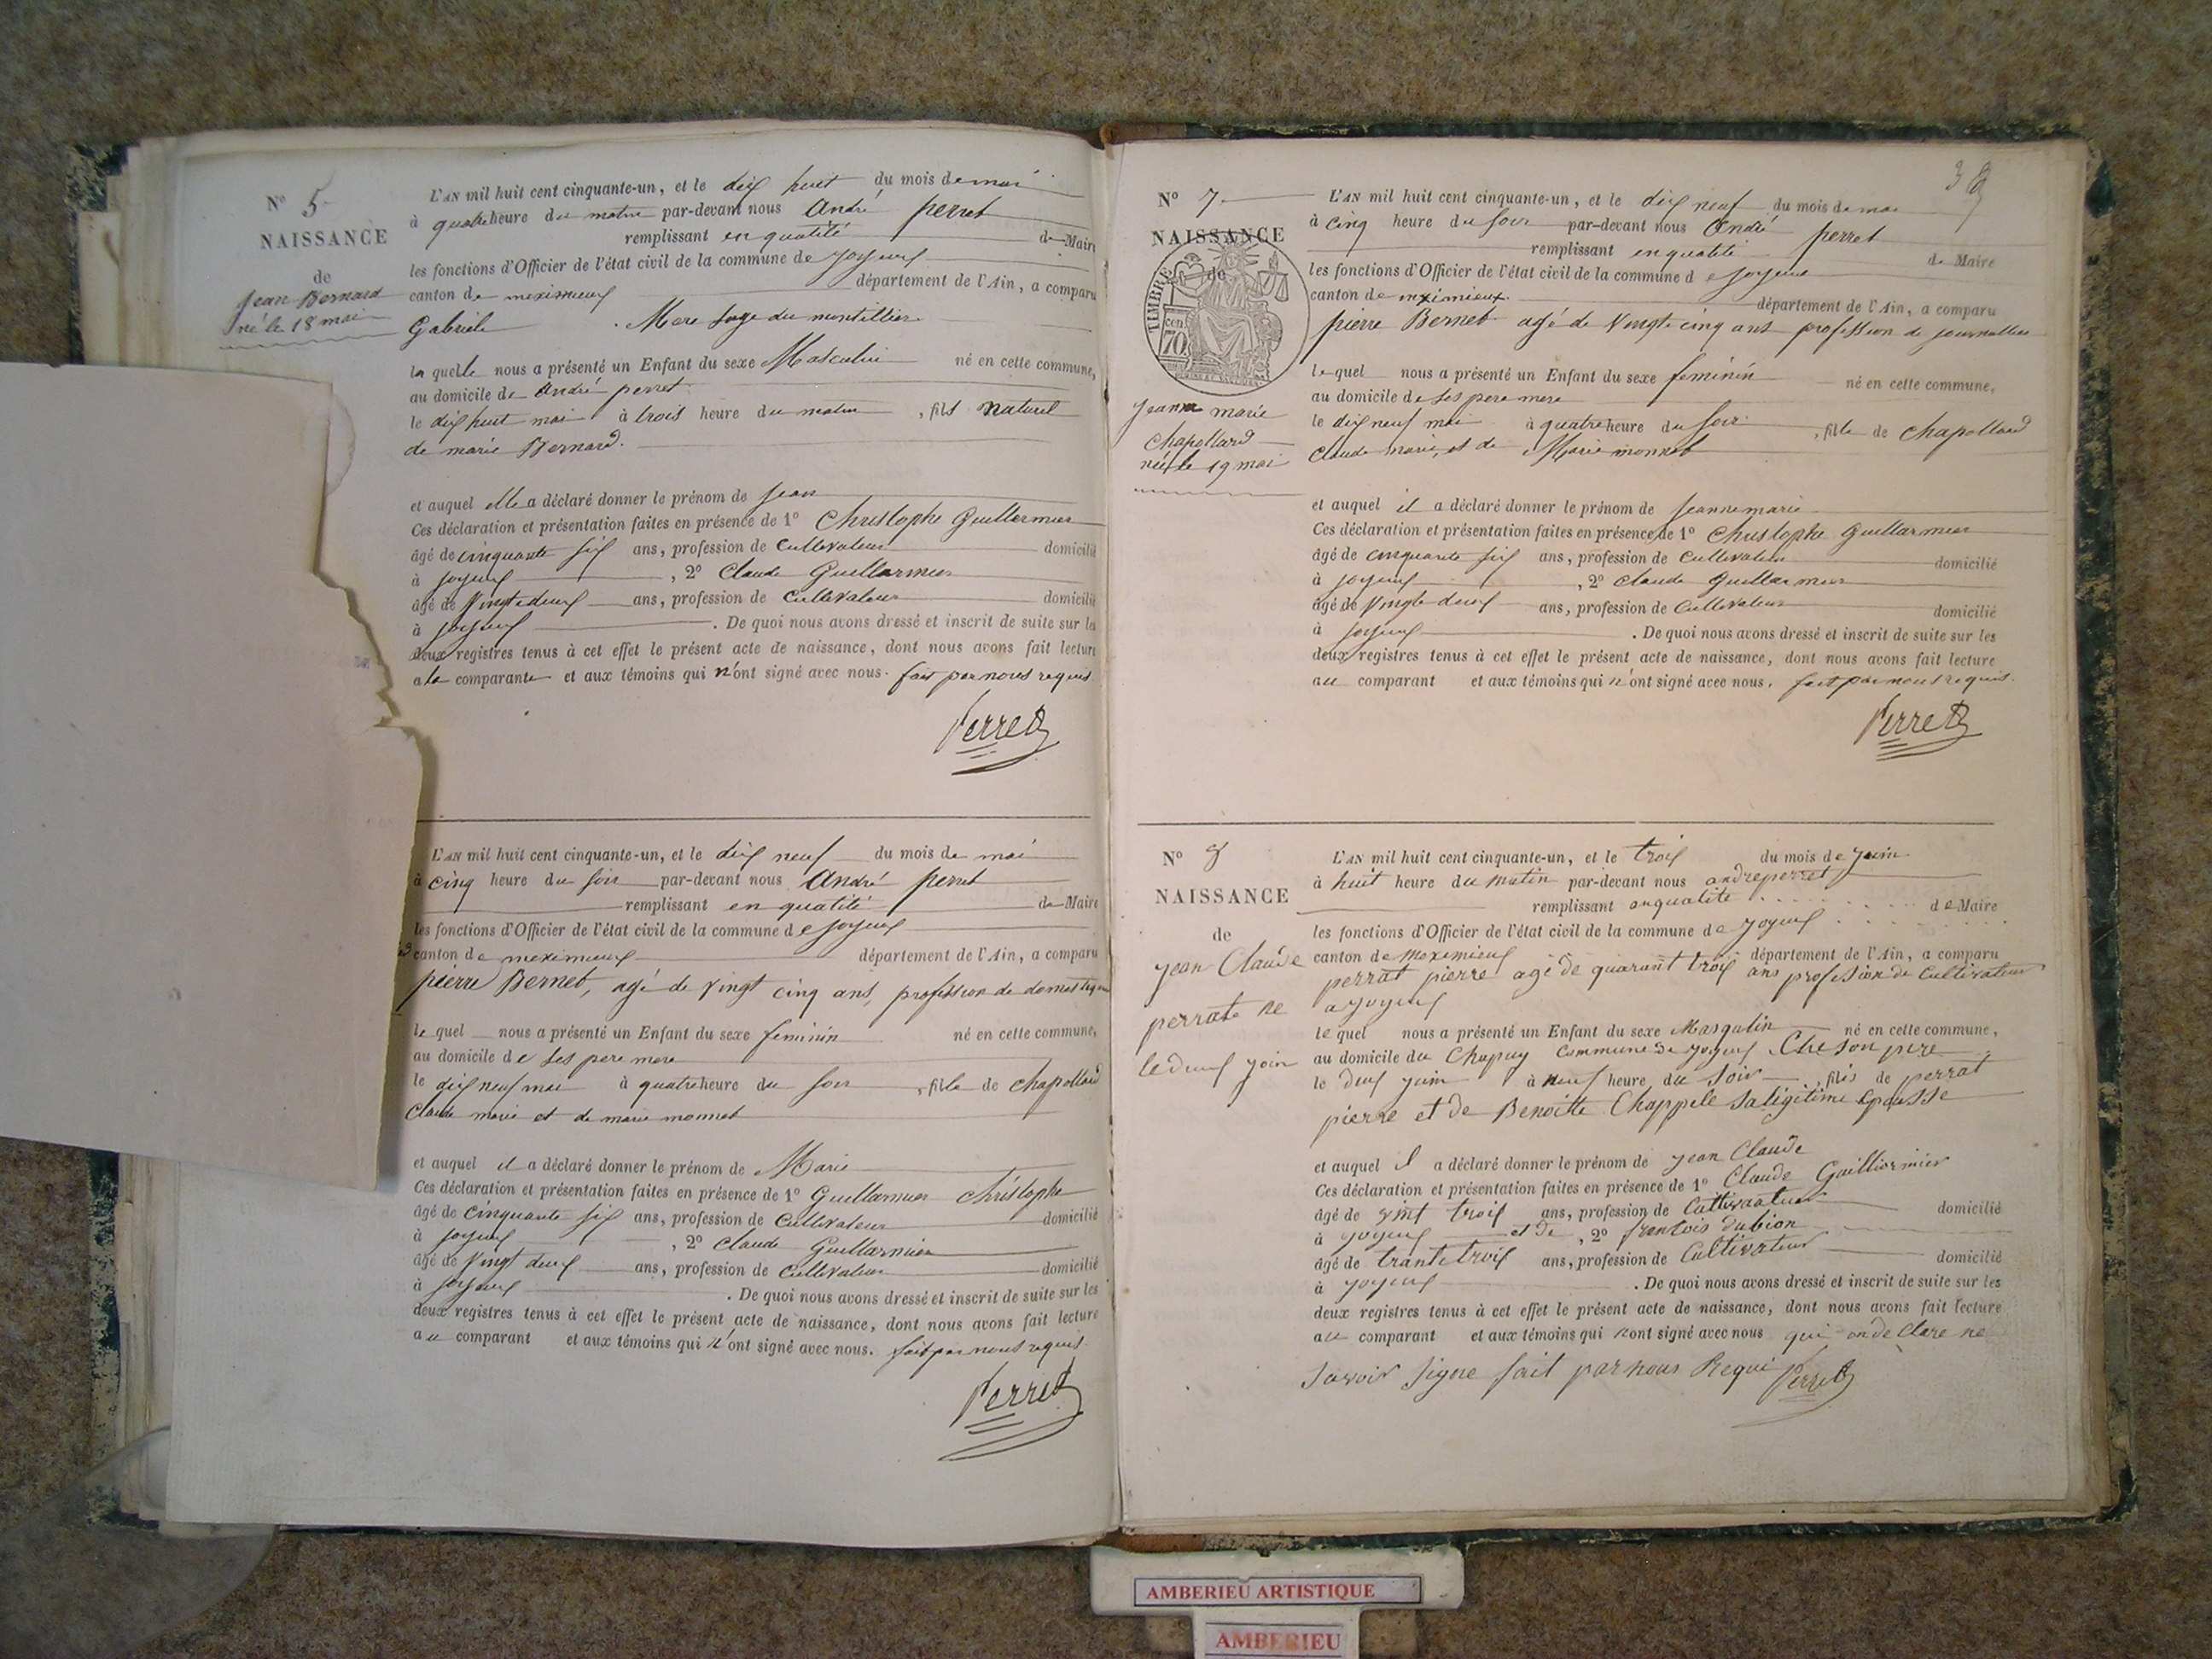 N° 5
NAISSANCE
de
Jean Bernard
né le 18 mai
L'AN mil huit cent cinquante-un, et le dix huit du mois de mai
à quatre heure du matin par-devant nous André perret
remplissant en qualité de Maire
les fonctions d'Officier de l'état civil de la commune de joyeux
canton de meximieux département de l'Ain, a comparu
Gabriele Mere sage du montellier
la quelle nous a présenté un Enfant du sexe Masculin né en cette commune,
au domicile de André perret
le dix huit mai à trois heure du matin, fils naturel
de marie Bernard.
et auquel elle a déclaré donner le prénom de Jean
Ces déclaration et présentation faites en présence de 1° Christophe Guillermier
âgé de cinquante six ans, profession de Cultivateur domicilié
à joyeux, 2° Claude Guillarmier
âgé de Vingt deux ans, profession de Cultivateur domicilié
à joyeux. De quoi nous avons dressé et inscrit de suite sur les
deux registres tenus à cet effet le présent acte de naissance, dont nous avons fait lecture
a la comparante et aux témoins qui n'ont signé avec nous. fait par nous requis
Perret
L'AN mil huit cent cinquante-un, et le dix neuf du mois de mai
à cinq heure du soir par-devant nous André perret
remplissant en qualité de Maire
les fonctions d'Officier de l'état civil de la commune de joyeux
canton de meximieux département de l'Ain, a comparu
pierre Bernet, agé de vingt cinq ans, profession de domestique
le quel nous a présenté un Enfant du sexe feminin né en cette commune,
au domicile de ses pere mere
le dix neuf mai à quatre heure du soir, fille de chapollard
Claude marie et de marie monnet
et auquel il a déclaré donner le prénom de Marie
Ces déclaration et présentation faites en présence de 1° Guillarmier Christophe
âgé de cinquante six ans, profession de Cultivateur domicilié
à joyeux, 2° Claude Guillarmier
âgé de Vingt deux ans, profession de Cultivateur domicilié
à joyeux. De quoi nous avons dressé et inscrit de suite sur les
deux registres tenus à cet effet le présent acte de naissance, dont nous avons fait lecture
au comparant et aux témoins qui n'ont signé avec nous. fait par nous requis
Perret
38
N° 7
NAISSANCE
de
TIMBRE
70
Jeanne marie
Chapollard
née le 19 mai
L'AN mil huit cent cinquante-un, et le dix neuf du mois de mai
à cinq heure du soir par-devant nous André perret
remplissant en qualité de Maire
les fonctions d'Officier de l'état civil de la commune de joyeux
canton de meximieux département de l'Ain, a comparu
pierre Bernet agé de Vingt cinq ans profession de journallier
le quel nous a présenté un Enfant du sexe feminin né en cette commune,
au domicile de ses pere mere
le dix neuf mai à quatre heure du soir, fille de chapollard
Claude marie, et de Marie monnet
et auquel il a déclaré donner le prénom de Jeanne marie
Ces déclaration et présentation faites en présence de 1° Christophe Guillarmier
âgé de cinquante six ans, profession de Cultivateur domicilié
à joyeux, 2° Claude Guillarmier
âgé de Vingt deux ans, profession de Cultivateur domicilié
à joyeux. De quoi nous avons dressé et inscrit de suite sur les
deux registres tenus à cet effet le présent acte de naissance, dont nous avons fait lecture
au comparant et aux témoins qui n'ont signé avec nous. fait par nous requis.
Perret
N° 8
NAISSANCE
de
jean Claude
perrat ne
le deux juin
L'AN mil huit cent cinquante-un, et le trois du mois de juin
à huit heure du matin par-devant nous andre perret
remplissant anqualite de Maire
les fonctions d'Officier de l'état civil de la commune de joyeux
canton de Meximieux département de l'Ain, a comparu
perrat pierre agé de quarant trois ans profession de Cultivateur
a joyeux
le quel nous a présenté un Enfant du sexe Masqulin né en cette commune,
au domicile du Chapuy Commune de joyeux Che son pere
le deux juin à neuf heure du soir, filis de perrat
pierre et de Benoitte Chappele sa ligitime Epousse
et auquel il a déclaré donner le prénom de jean Claude
Ces déclaration et présentation faites en présence de 1° Claude Guilliormier
âgé de vint trois ans, profession de Cultivateur domicilié
à joyeux et de, 2° frantois dubion
âgé de trante trois ans, profession de Cultivateur domicilié
à joyeux. De quoi nous avons dressé et inscrit de suite sur les
deux registres tenus à cet effet le présent acte de naissance, dont nous avons fait lecture
au comparant et aux témoins qui n'ont signé avec nous qui on de Clare ne
savoir signe fait par nous Requi Perret
AMBERIEU ARTISTIQUE
AMBERIEU